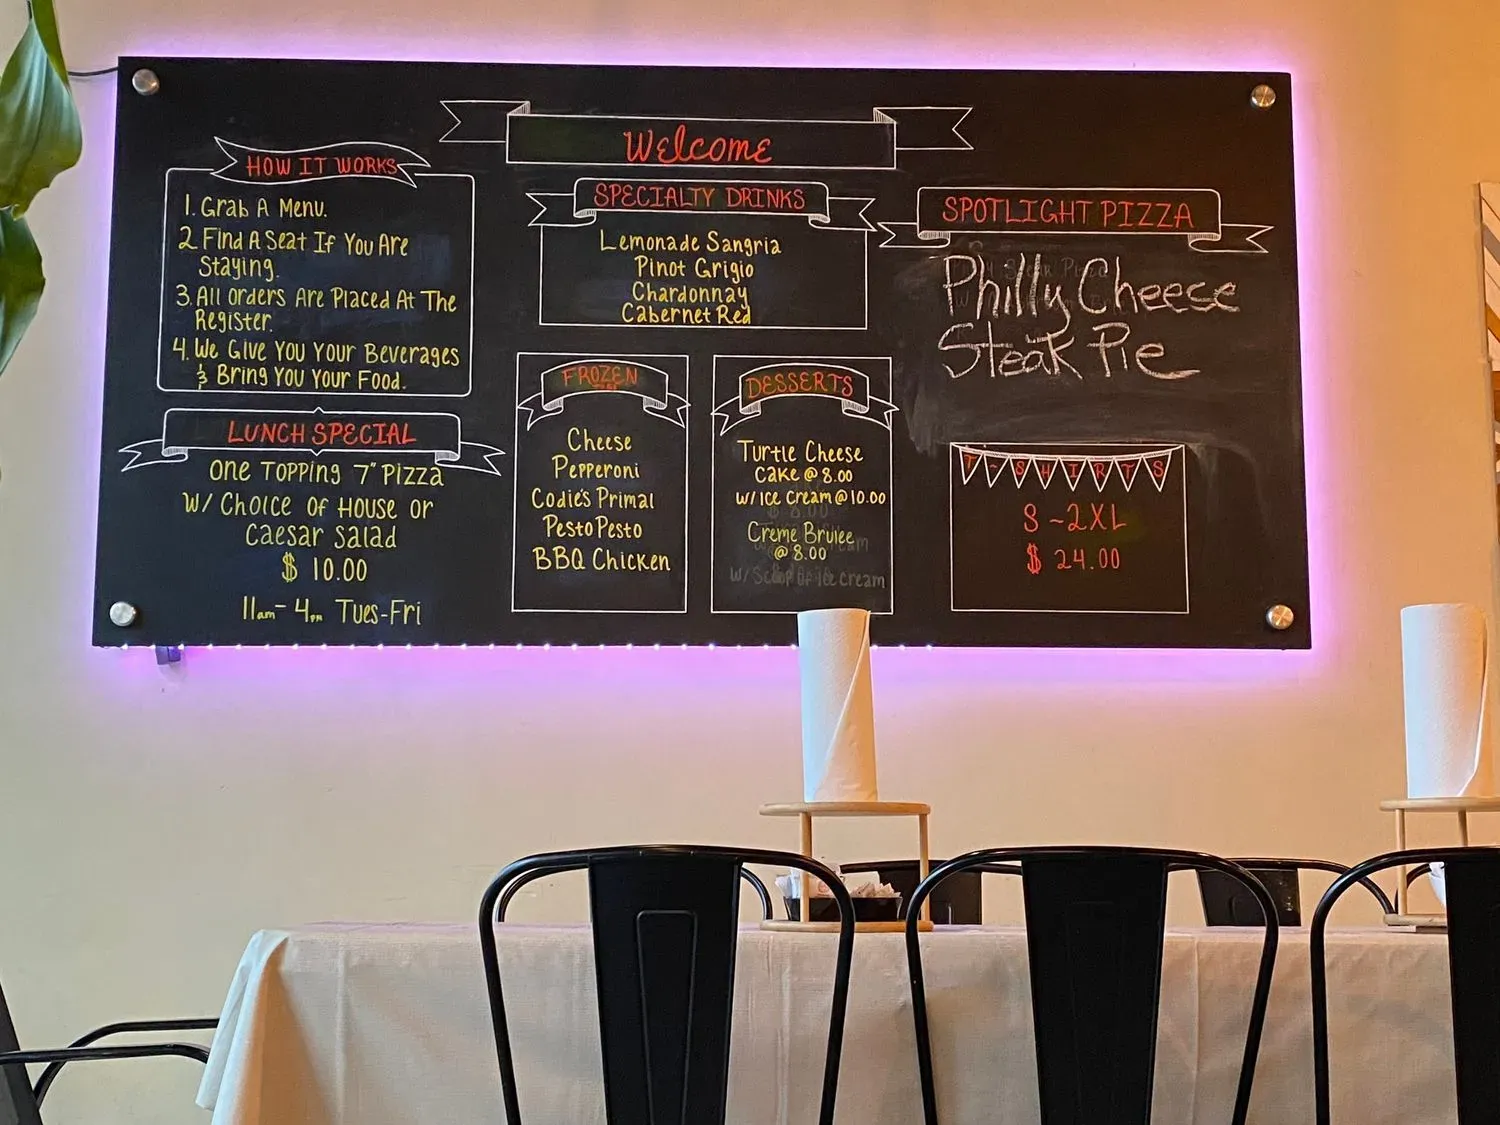 Welcome
HOW IT WORKS
1. Grab A Menu.
2 Find A Seat If You Are
Staying.
3. All Orders Are Placed At The
Register.
4. We Give You Your Beverages
& Bring You Your Food.
LUNCH SPECIAL
One Topping 7" Pizza
W/ Choice Of House or
Caesar Salad
$ 10.00
11am - 4pm Tues-Fri
SPECIALTY DRINKS
Lemonade Sangria
Pinot Grigio
Chardonnay
Cabernet Red
FROZEN
Cheese
Pepperoni
Codie's Primal
Pesto Pesto
BBQ Chicken
DESSERTS
Turtle Cheese
Cake @ 8.00
W/ Ice Cream @ 10.00
Creme Brulee
@ 8.00
W/ Scoop Of Ice Cream
SPOTLIGHT PIZZA
Philly Cheese
Steak Pie
T-SHIRTS
S ~ 2XL
$ 24.00